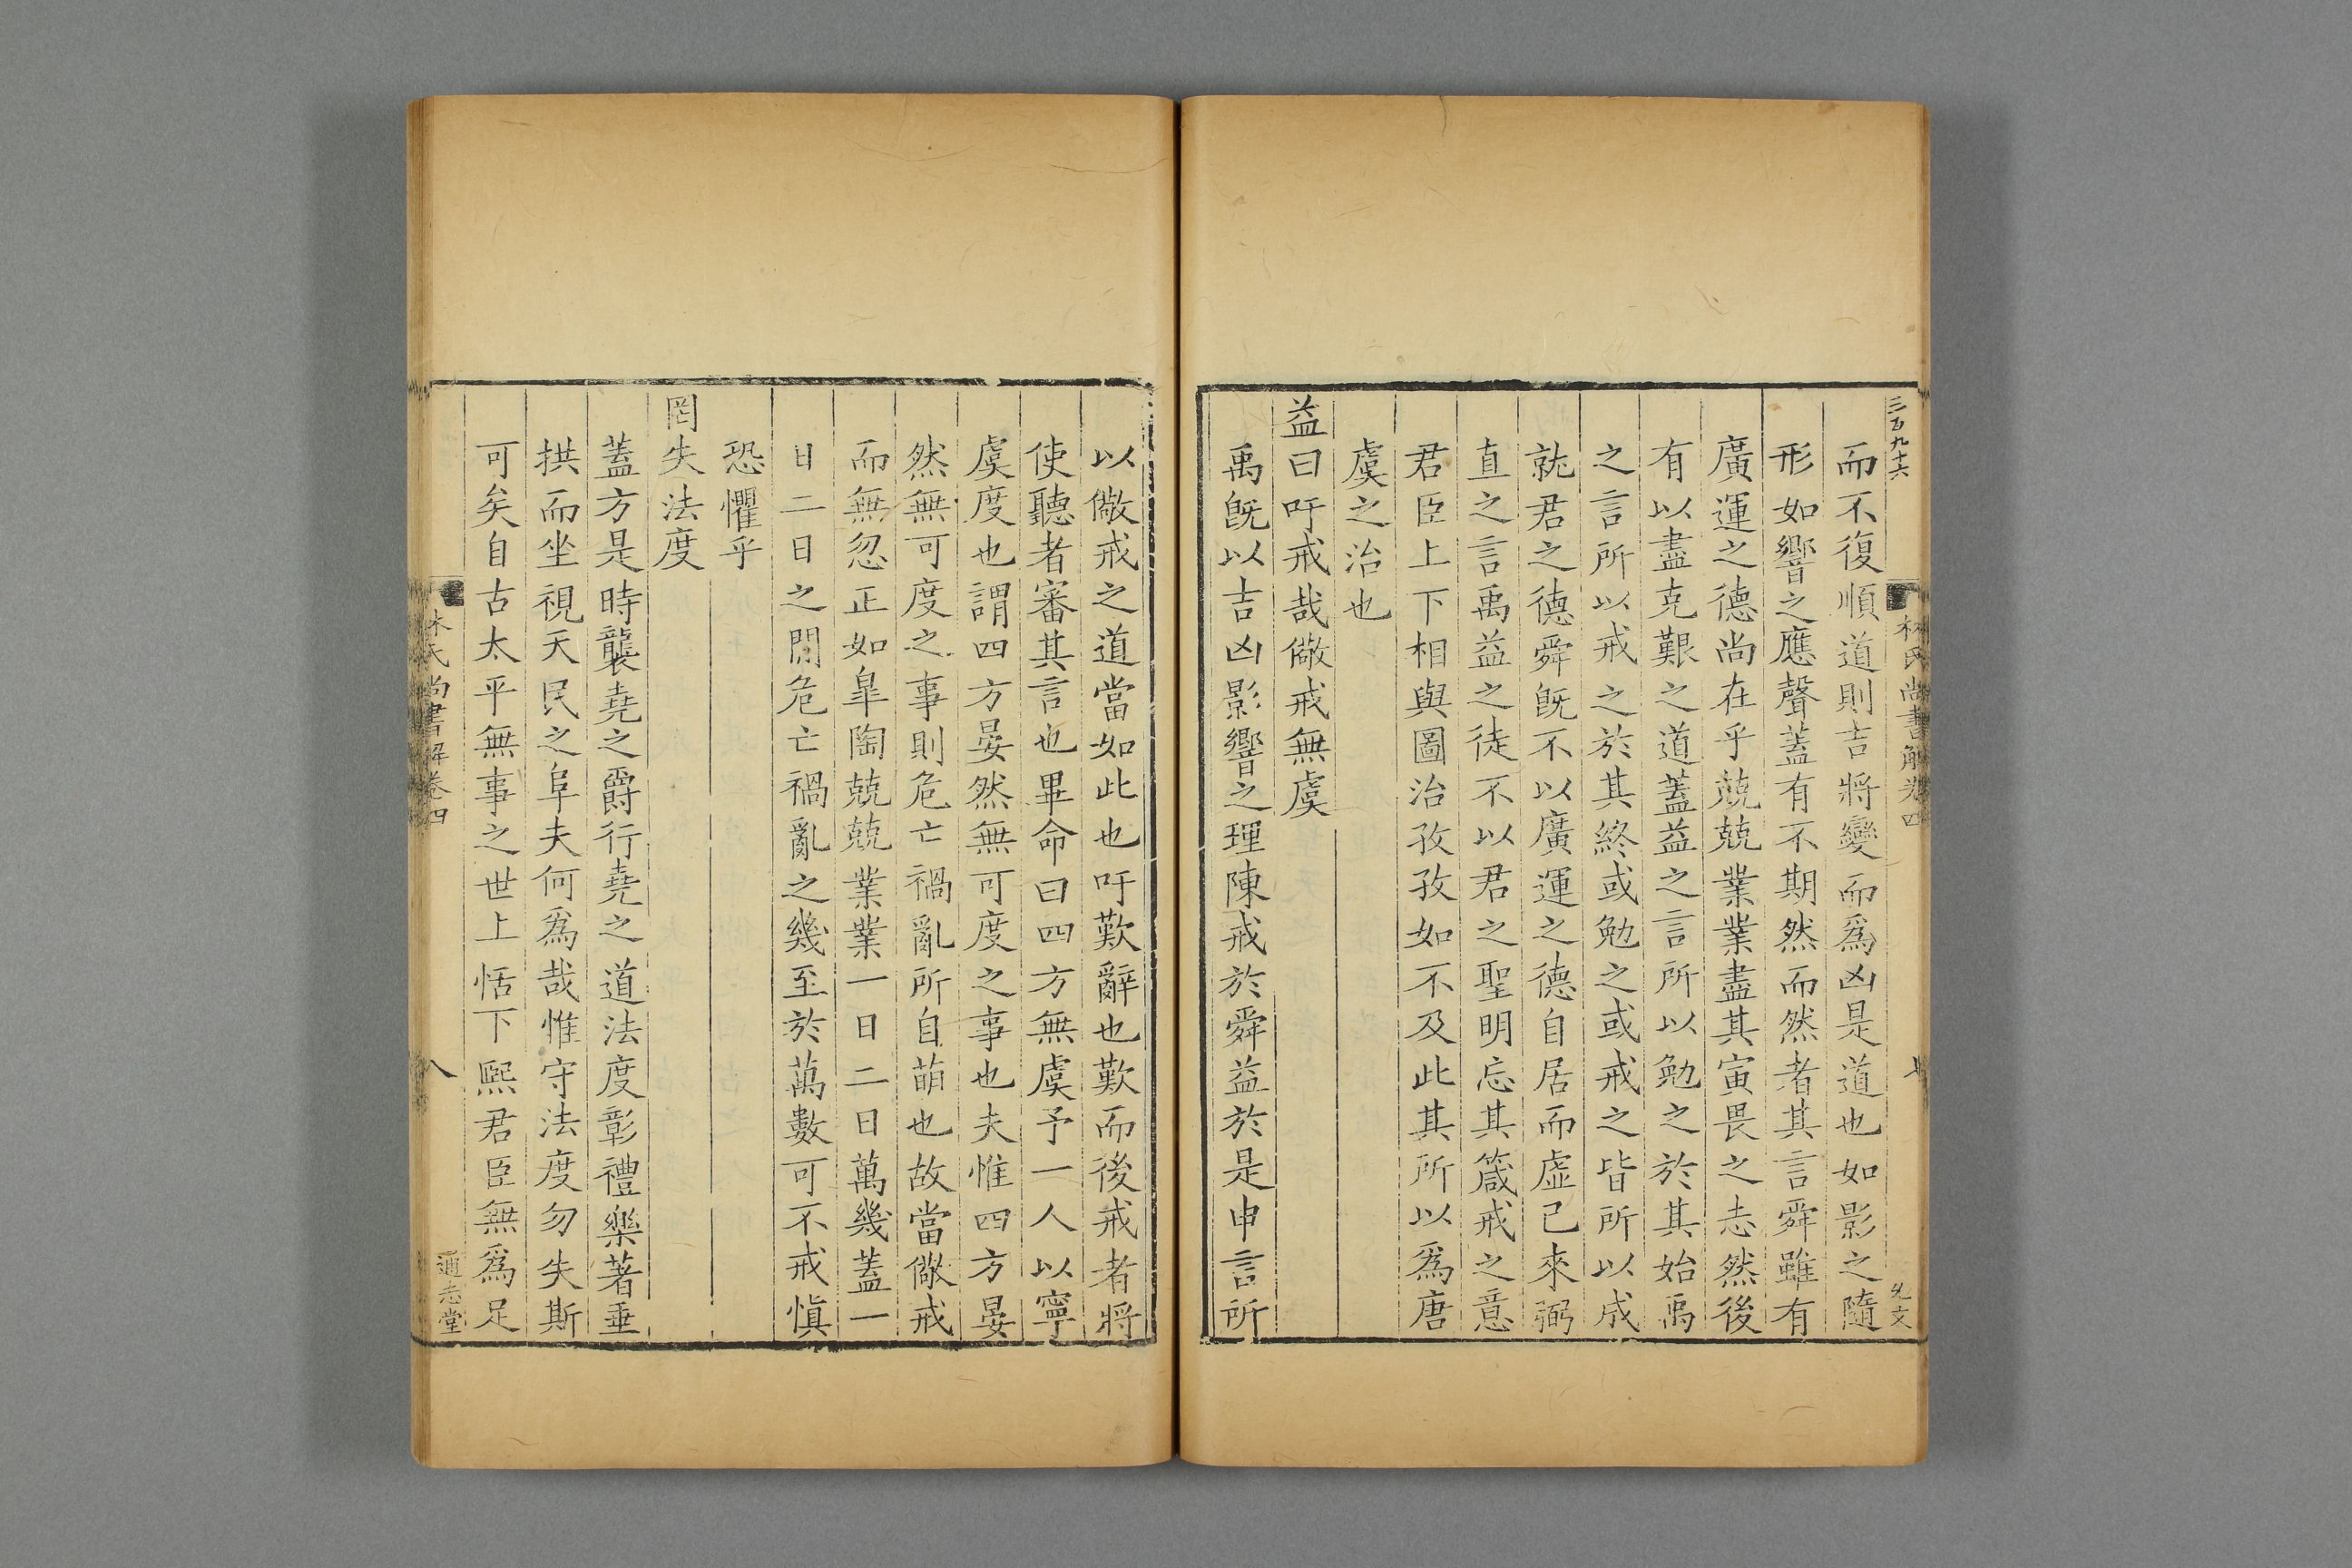 三百九十六
林氏尚書解卷四
七
先文
而不復順道則吉將變而爲凶是道也如影之隨
形如響之應聲蓋有不期然而然者其言舜雖有
廣運之德尚在乎兢兢業業盡其寅畏之志然後
有以盡克艱之道蓋益之言所以勉之於其始禹
之言所以戒之於其終或勉之或戒之皆所以成
就君之德舜旣不以廣運之德自居而虛己來弼
直之言禹益之徒不以君之聖明忘其箴戒之意
君臣上下相與圖治孜孜如不及此其所以爲唐
虞之治也
益曰吁戒哉儆戒無虞
禹旣以吉凶影響之理陳戒於舜益於是申言所
以儆戒之道當如此也吁歎辭也歎而後戒者將
使聽者審其言也畢命曰四方無虞予一人以寧
虞度也謂四方晏然無可度之事也夫惟四方晏
然無可度之事則危亡禍亂所自萌也故當儆戒
而無忽正如臯陶兢兢業業一日二日萬幾蓋一
日二日之閒危亡禍亂之幾至於萬數可不戒慎
恐懼乎
罔失法度
蓋方是時襲堯之爵行堯之道法度彰禮樂著垂
拱而坐視天民之阜夫何爲哉惟守法度勿失斯
可矣自古太平無事之世上恬下熙君臣無爲足
林氏尚書解卷四
八
通志堂